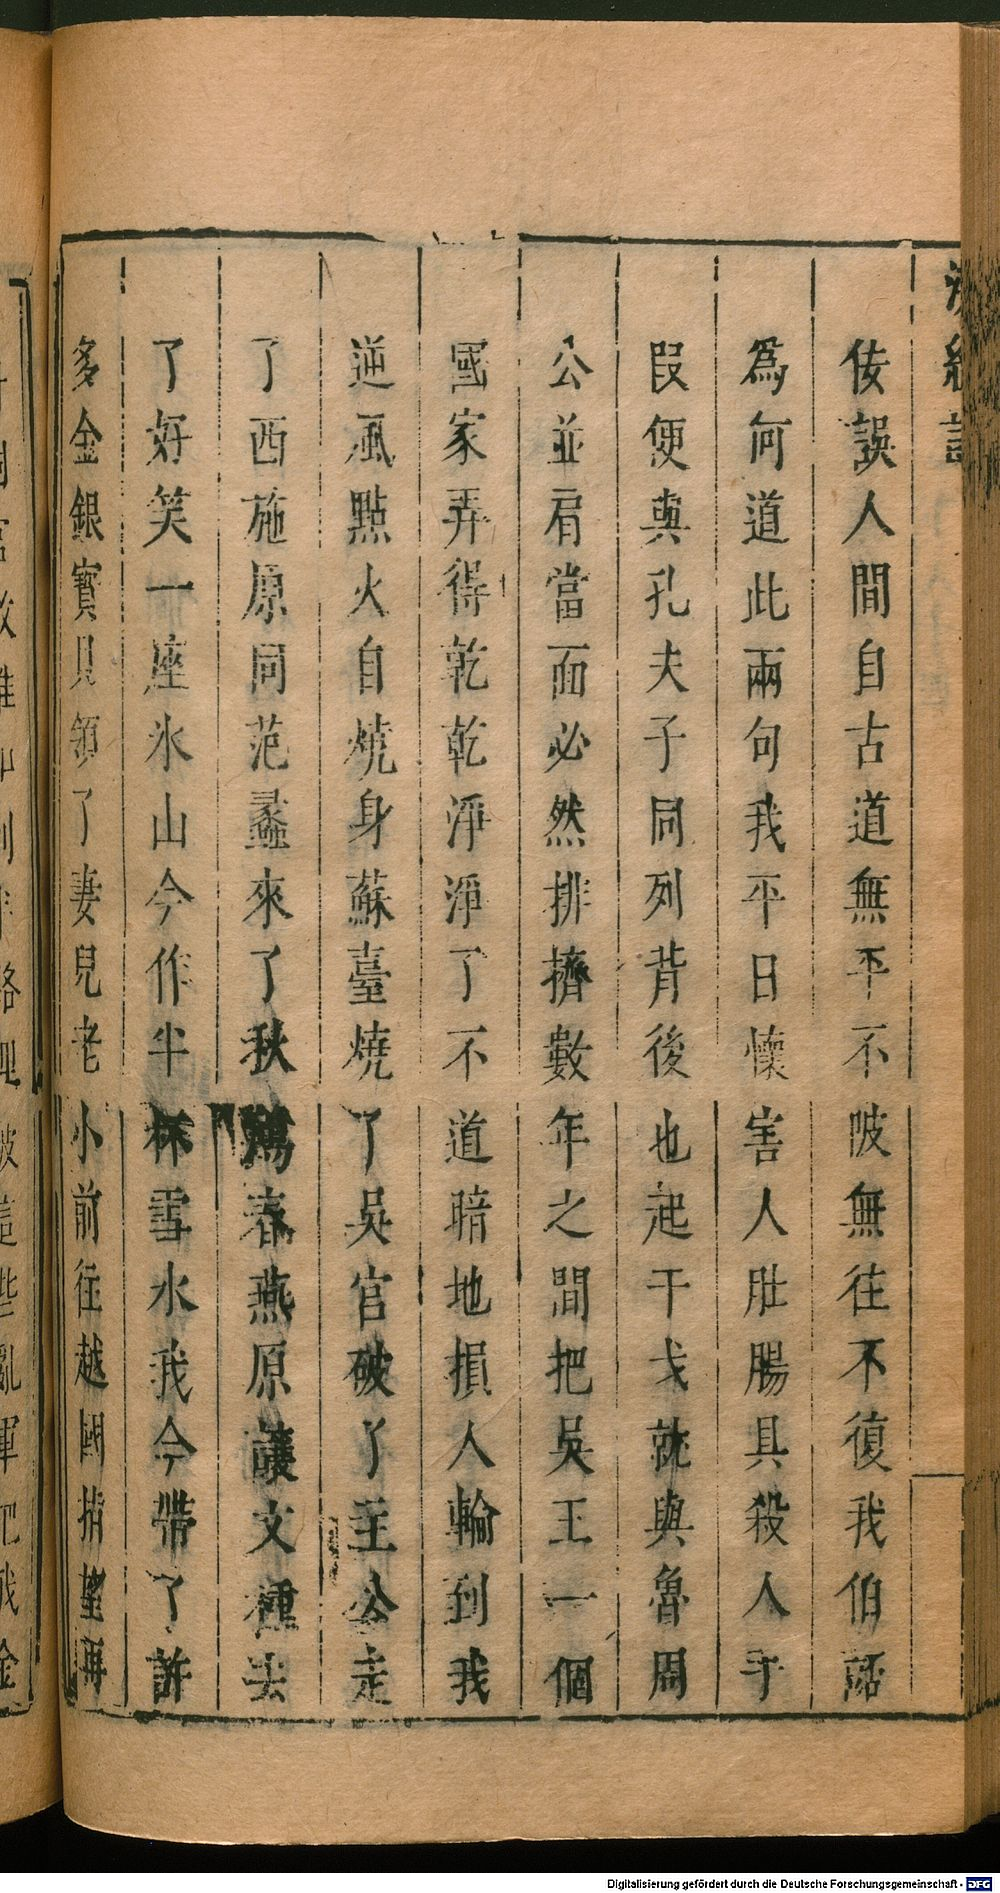 浣紗記
佞誤人間自古道無平不陂無往不復我伯嚭
爲何道此兩句我平日懷害人肚腸具殺人手
段便與孔夫子同列背後也起干戈就與魯周
公並肩當面必然排擠數年之間把吳王一個
國家弄得乾乾淨淨了不道暗地損人輪到我
逆風點火自燒身蘇臺燒了吳官破了主公走
了西施原同范蠡來了秋鴻春燕原議文種去
了好笑一座氷山今作半杯雪水我今帶了許
多金銀寳貝領了妻兒老小前徃越國指望再
Digitalisierung gefördert durch die Deutsche Forschungsgemeinschaft - DFG